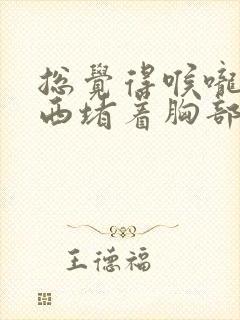 总覺得喉嚨
西堵着胸部
王德福